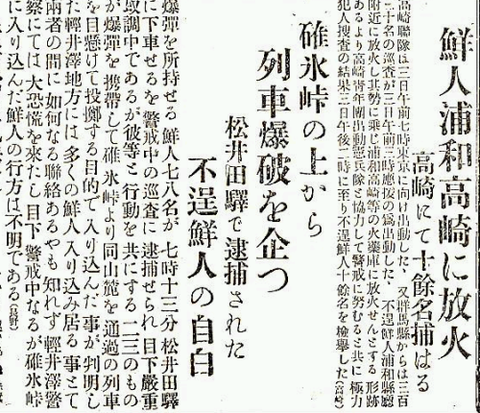 鮮人浦和高崎に放火
高崎にて十餘名捕はる
高崎聯隊は三日午前七時東京に向け出動した、又群馬縣からは三百
二十名の巡査が三日午前三時應援の爲出動した、不逞鮮人浦和縣廳
附近に放火し其勢に乗じ浦和高崎等の火薬庫に放火せんとする形跡
あるより高崎青年團出動憲兵隊と協力して警戒に努むると共に極力
犯人捜査の結果三日午後二時に至り不逞鮮人十餘名を檢擧した
碓氷峠の上から
列車爆破を企つ
松井田驛で逮捕された
不逞鮮人の自白
爆彈を所持せる鮮人七八名が七時十三分松井田驛
に下車せるを警戒中の巡査に逮捕せられ目下嚴重
取調中であるが彼等と行動を共にする一二三のもの
が爆彈を携帶して碓氷峠より同山麓を通過の列車
を目懸けて投擲する目的で入り込んだ事が判明し
た輕井澤地方には多くの鮮人入り込み居る事とて
兩者の間に如何なる聯絡あるやも知れず輕井澤警
察にては大恐慌を來たし目下警戒中なるが碓氷峠
に入り込んだ鮮人の行方は不明である(長野)